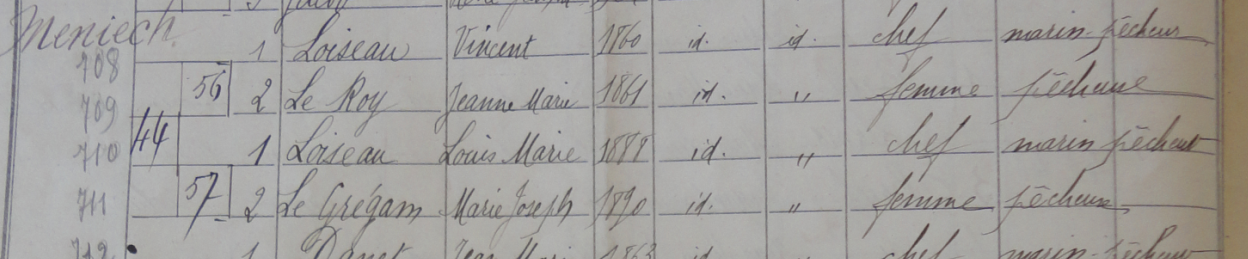 Meniech
1 Loiseau Vincent 1860 id. id. chef marin-pêcheur
708
56 2 Le Roy Jeanne Marie 1861 id. " femme pêcheuse
709
44
710 1 Loiseau Louis Marie 1888 id. " chef marin pêcheur
711 57 2 Le Grégam Marie Joseph 1890 id. " femme pêcheuse
712 1 Danet Jean Marie 1863 id. chef marin-pêcheur